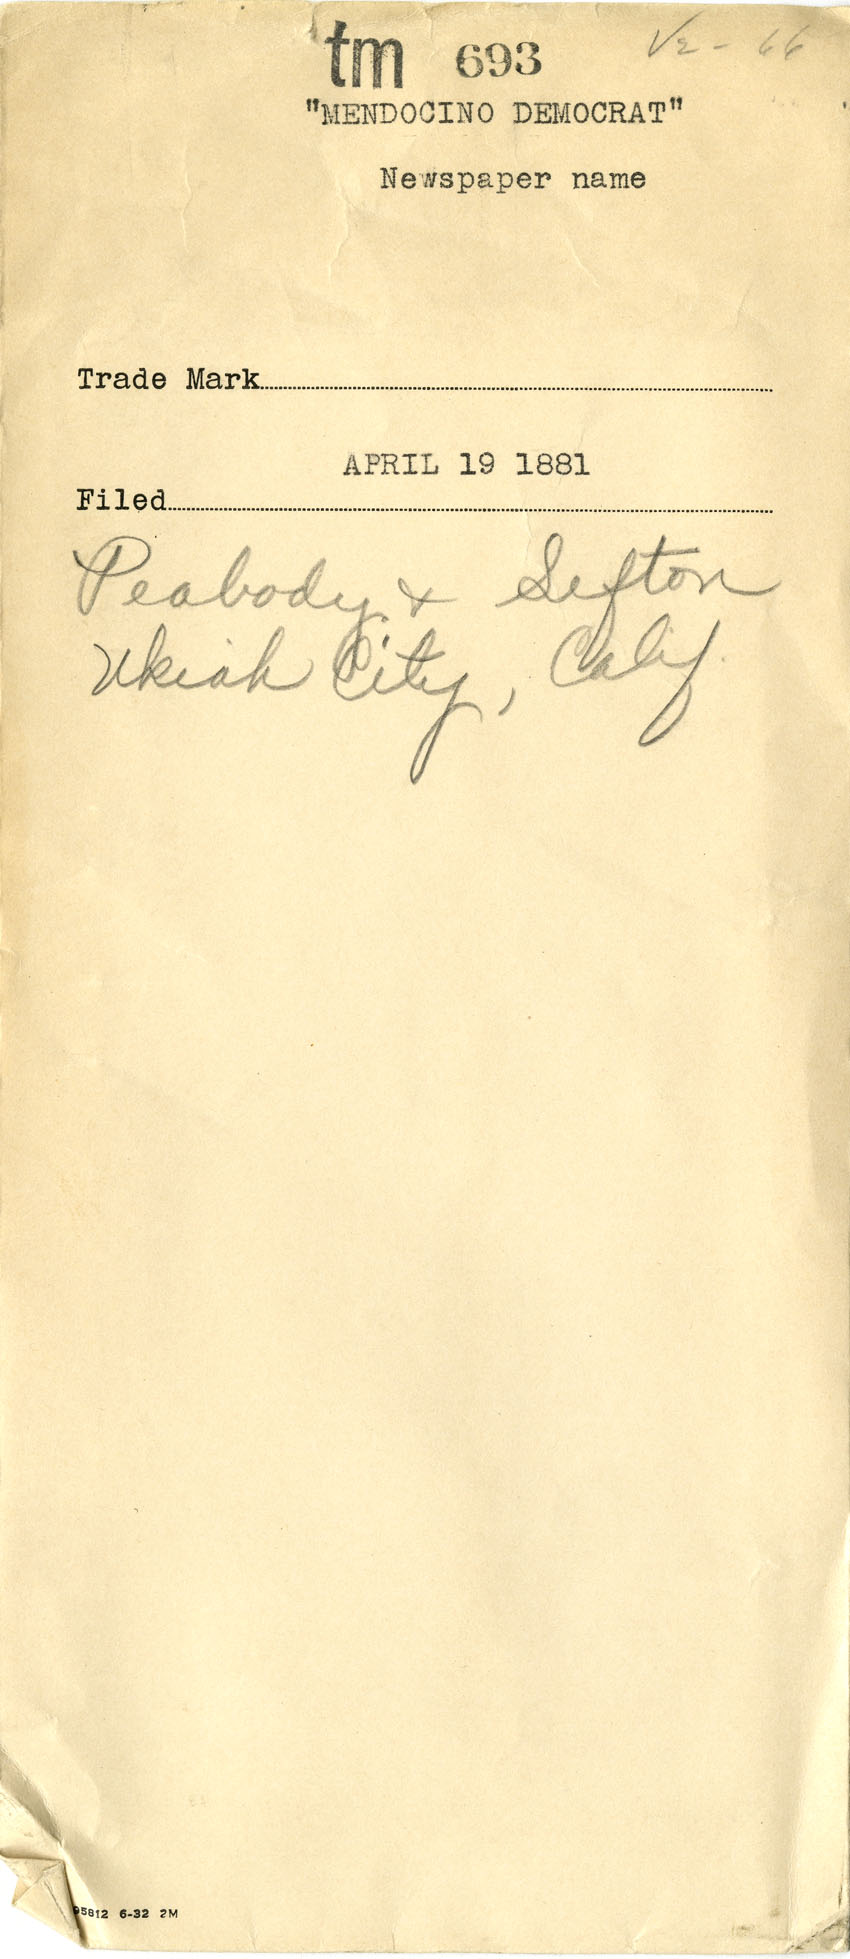 tm 693 V2-66
"MENDOCINO DEMOCRAT"
Newspaper name
Trade Mark
APRIL 19 1881
Filed
Peabody & Sefton
Ukiah City, Calif.
95812 6-32 2M